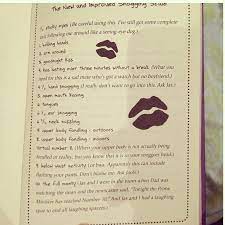 The New and Improved Snogging Scale
½. sticky eyes (Be careful using this. I've still got some complete
git following me around like a seeing-eye dog.)
1. holding hands
2. arm around
3. goodnight kiss
4. kiss lasting over three minutes without a break (What you
need for this is a sad mate who's got a watch but no boyfriend.)
4½. hand snogging (I really don't want to go into this. Ask Jas.)
5. open mouth kissing
6. tongues
6½. ear snogging
6¾. neck nuzzling
7. upper body fondling - outdoors
8. upper body fondling - indoors
virtual number 8. (When your upper body is not actually being
fondled in reality, but you know that it is in your snoggees head.)
9. below waist activity (or bwa. Apparently this can include
flashing your pants. Don't blame me. Ask Jas.)
10. the full monty (Jas and I were in the room when Dad was
watching the news and the newscaster said, "Tonight the Prime
Minister has reached Number 10." And Jas and I had a laughing
spree to end all laughing sprees.)